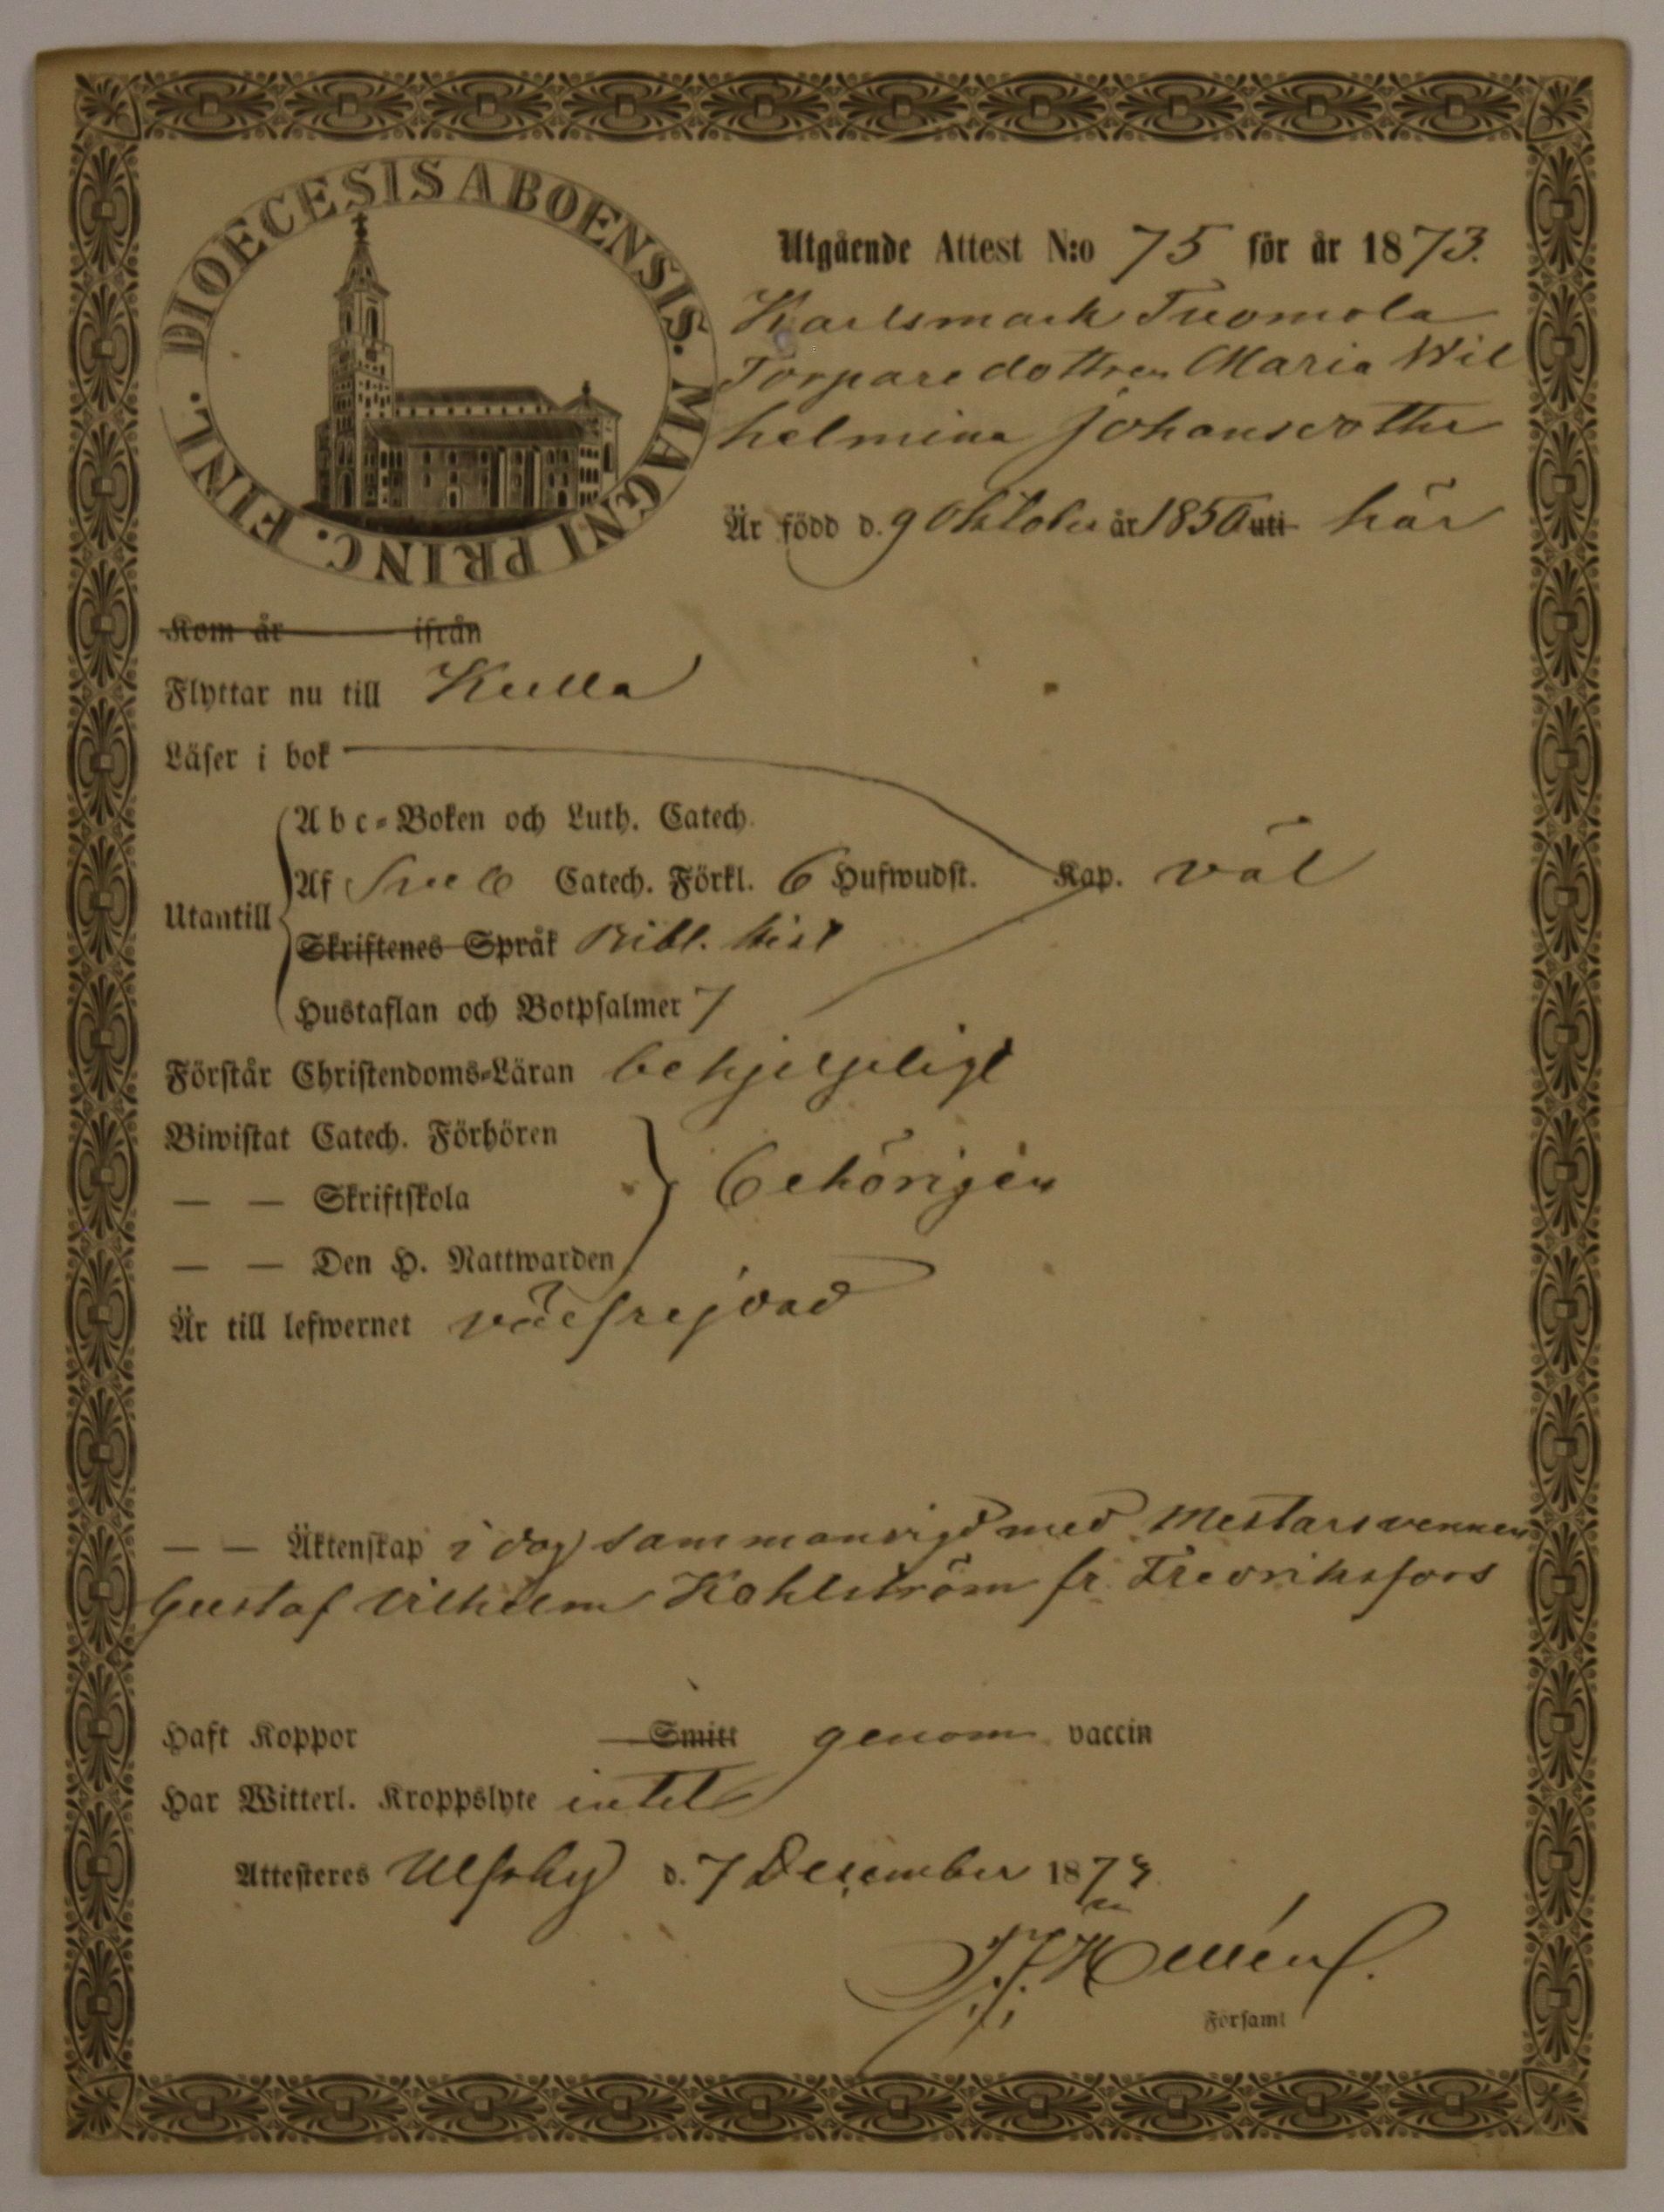 DIOECESIS ABOENSIS. MAGNI PRINC. FINL.
Utgående Attest N:o 75 för år 1873.
Karlsmark Tuomola
Torparedottren Maria Wil
helmina Johansdotter
Är född d. 9 Oktober år 1850 uti här
Kom år ifrån
Flyttar nu till Kulla
Läser i bok
Abc-Boken och Luth. Catech.
Af Sveb Catech. Förkl. 6 Hufwudst. Kap. väl
Utantill
Skriftenes Språk Bibl. hist
Hustaflan och Botpsalmer 7
Förstår Christendoms-Läran behjelpligt
Biwistat Catech. Förhören
— — Skriftskola behörigen
— — Den H. Nattwarden
Är till lefwernet välfrejdad
— — Äktenskap i dag sammanvigd med Mestarsvennen
Gustaf Vilhelm Kahlström fr. Fredriksfors
Haft Koppor Smitt genom vaccin
Har Witterl. Kroppslyte intet
Attesteres Ulfsby d. 7 December 1873
Forsamt